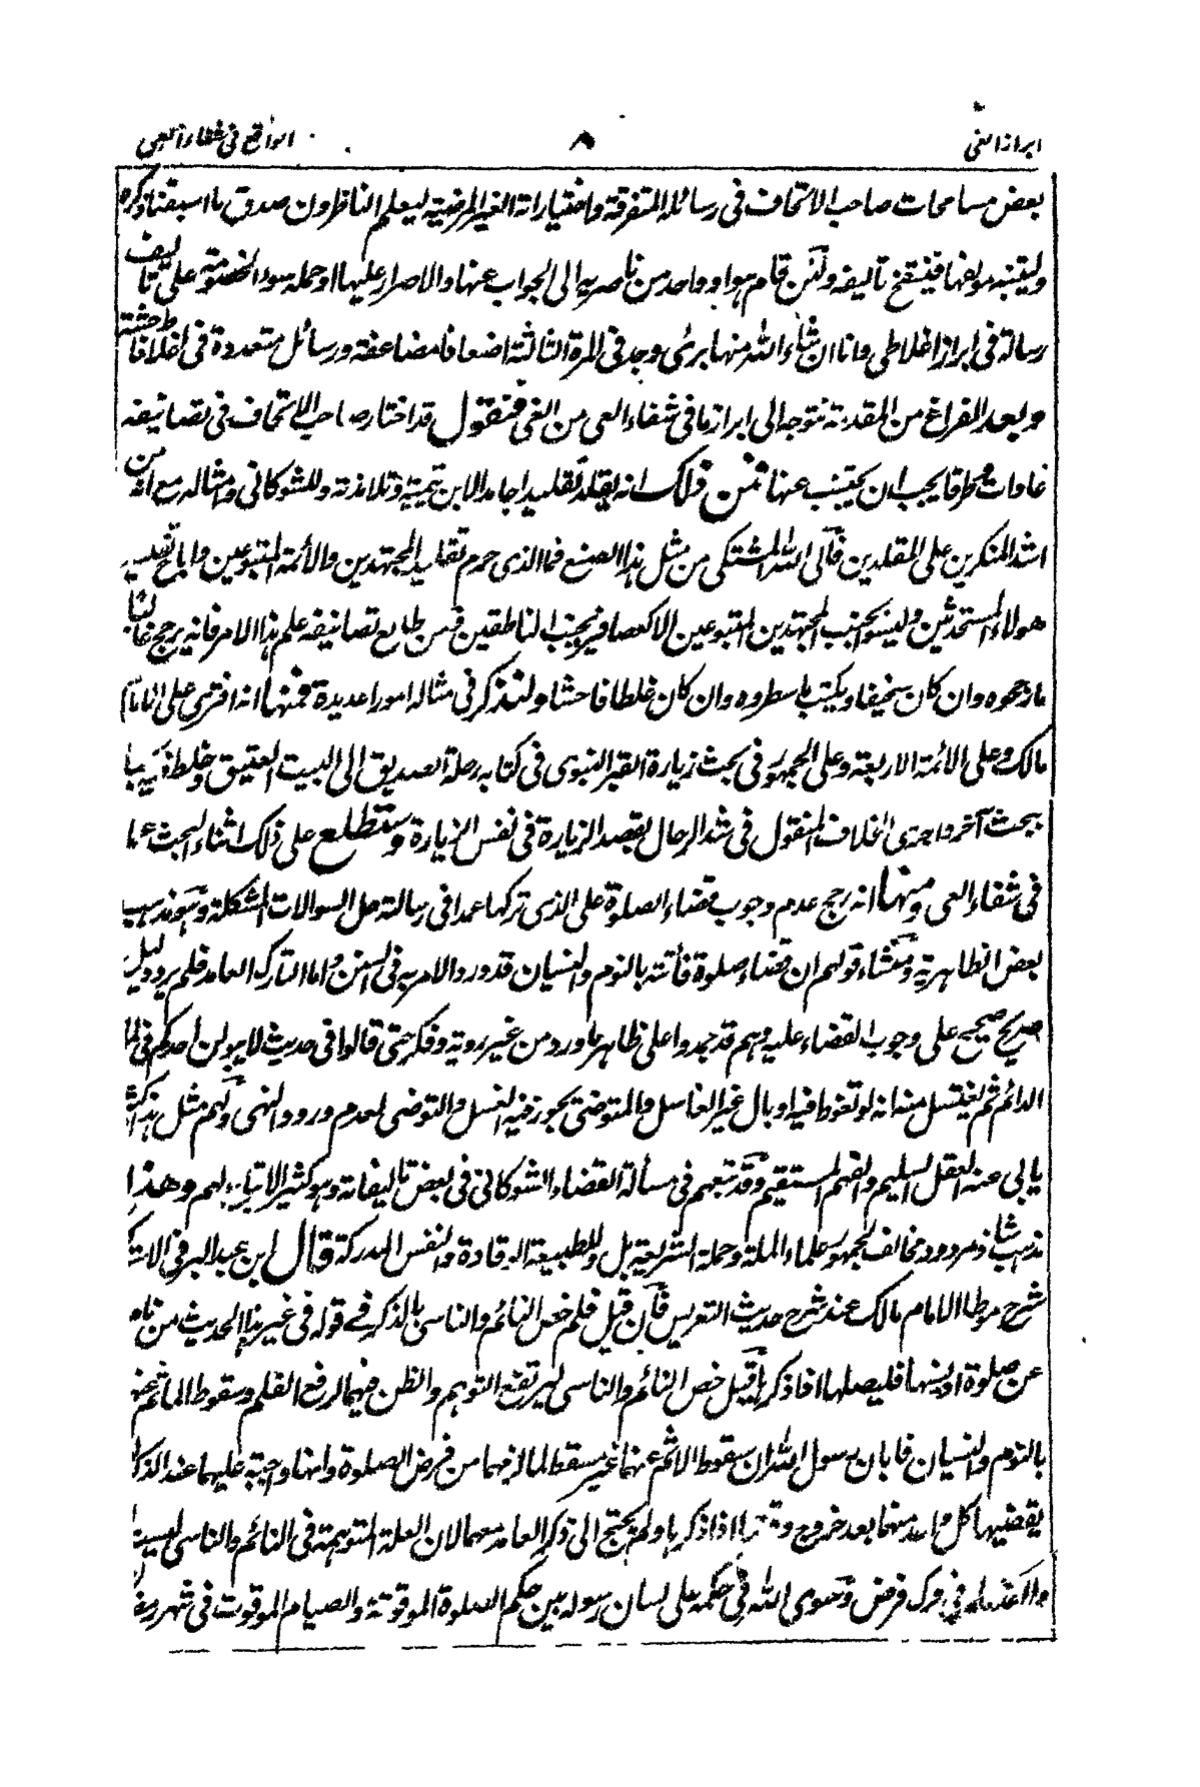 ابراز الغي
٨
الواقع في شفاء العي
بعض مسامحات صاحب الاتحاف في رسائله المتفرقة واختياراته الغير المرضية ليعلم الناظرون صدق ما اسبقنا ذكره
وليتنبه مؤلفها فينقح تاليفه ولئن قام هو او واحد من ناصريه الى الجواب عنها والاصرار عليها او حمله سوء الخصومة على تاليف
رسالة في ابراز اغلاطي وانا ان شاء الله منها برئ وجد في المرة الثالثة اضعافا مضاعفة ورسائل متعددة في اغلاطه الفاحشة
وبعد الفراغ من المقدمة نتوجه الى ابراز ما في شفاء العي من الغي فنقول قد اختار صاحب الاتحاف في تصانيفه
عادات وطرقا يجب ان يجتنب عنها فمن ذلك انه يقلد تقليدا جامدا لابن تيمية وتلامذته وللشوكاني وامثاله مع انه من
اشد المنكرين على المقلدين فالى الله المشتكى من مثل هذا الصنع فما الذي حرم تقليد المجتهدين والأئمة المتبوعين واباح تقليد
هولاء المستحدثين وليسوا بجنب المجتهدين المتبوعين الا كعصافير بجنب الناطقين فمن طالع تصانيفه علم هذا الامر فانه يرجح غالبا
ما رجحوه وان كان سخيفا ويكتب ما سطروه وان كان غلطا فاحشا ولنذكر في مثاله امورا عديدة فمنها انه افترى على الامام
مالك وعلى الائمة الاربعة وعلى الجمهور في بحث زيارة القبر النبوى في كتابه رحلة الصديق الى البيت العتيق وخلط
ببحث آخر واجرى الخلاف المنقول في شد الرحال بقصد الزيارة في نفس الزيارة وستطلع على ذلك اثناء البحث عما
في شفاء العي ومنها انه رجح عدم وجوب قضاء الصلوة على الذي تركها عمدا في رسالته حل السوالات المشكلة وهو مذهب
بعض الظاهرية ومنشاء قولهم ان قضاء صلوة فائتة بالنوم والنسيان قد ورد الامر به في السنن واما التارك العامد فلم يرد دليل
صريح صحيح على وجوب القضاء عليه وهم قد جمدوا على ظاهر ما ورد من غير روية وفكر حتى قالوا في حديث لا يبولن احدكم في الماء
الدائم ثم يغتسل منه انه لو تغوط فيه او بال غير الغاسل والمتوضي يجوز فيه الغسل والتوضى لعدم ورود النهى ولهم مثل هذا كثير
يابى عنه العقل السليم والفهم المستقيم وقد تبعهم في مسألة القضاء الشوكاني في بعض تاليفاته وهو كثير الاتباع لهم وهذا
مذهب شاذ ومردود مخالف لجمهور علماء الملة وحملة الشريعة بل وللطبيعة الوقادة والنفس المدركة قال ابن عبد البر في الاستذكار
شرح موطا الامام مالك عند شرح حديث التعريس فان قيل فلم خص النائم والناسي بالذكر في قوله في غير هذا الحديث من نام
عن صلوة او نسيها فليصلها اذا ذكرها قيل خص النائم والناسي ليرتفع التوهم والظن فيهما لرفع القلم وسقوط الماثم عنهما
بالنوم والنسيان فابان رسول الله ان سقوط الاثم عنهما غير مسقط لما لزمهما من فرض الصلوة وانها واجبة عليهما عند الذكر
يقضيها كل واحد منهما بعد خروج وقتها اذا ذكرها ولم يحتج الى ذكر العامد معهما لان العلة المتوهمة في النائم والناسي ليست
في ترك فرض وسوى الله في حكمه على لسان رسوله بين حكم الصلوة الموقوتة والصيام الموقوت في شهر رمضان